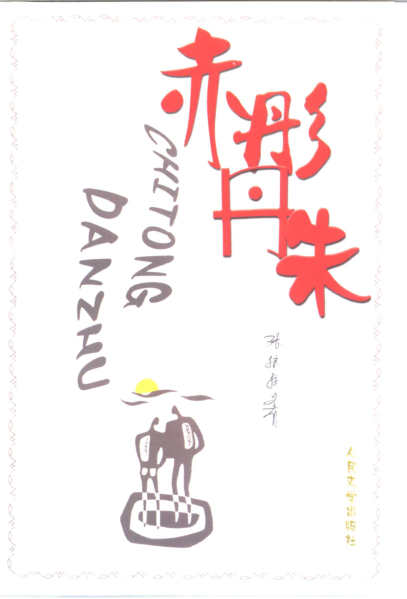 赤彤丹朱
CHITONG
DANZHU
张抗抗 著
人民文学出版社